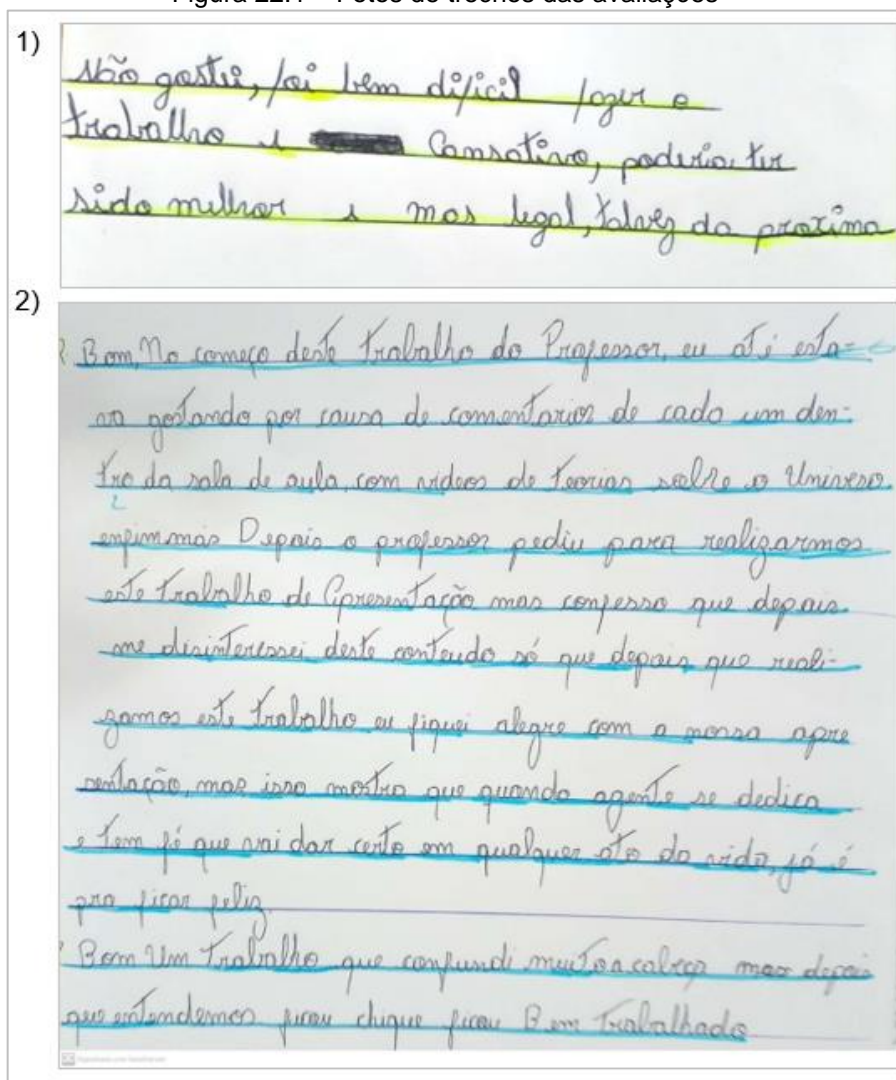 1)
não gostei, foi bem dificil fazer o
trabalho e cansativo, poderia ter
sido melhor e mas legal, talvez da proxima
2)
Bom, No começo deste trabalho do Professor, eu até esta-
va gostando por causa de comentarios de cada um den-
tro da sala de aula, com videos de teorias sobre o Universo
enfim mas Depois o professor pediu para realizarmos
este trabalho de Apresentação mas confesso que depois
me disinteressei deste conteudo só que depois que reali-
zamos este trabalho eu fiquei alegre com a nossa apre
sentação, mas isso mostra que quando agente se dedica
e tem fé que vai dar certo em qualquer ato da vida, já é
pra ficar feliz
Bom Um trabalho que confundi muito a cabeça mas depois
que entendemos ficou chique ficou Bem trabalhado